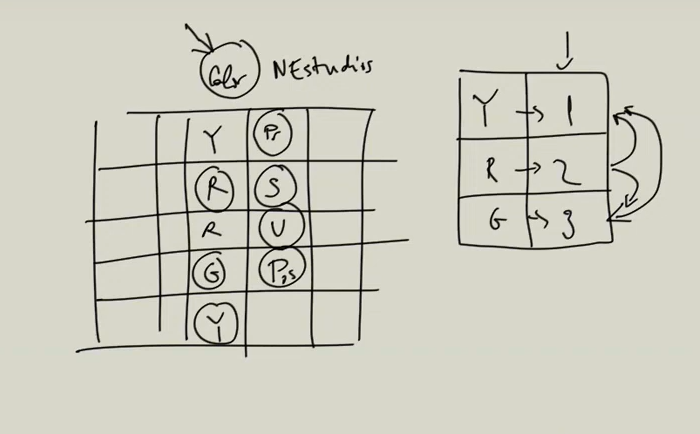 Color NEstudios
Y Pr
R S
R U
G Pos
Y
Y → 1
R → 2
G → 3